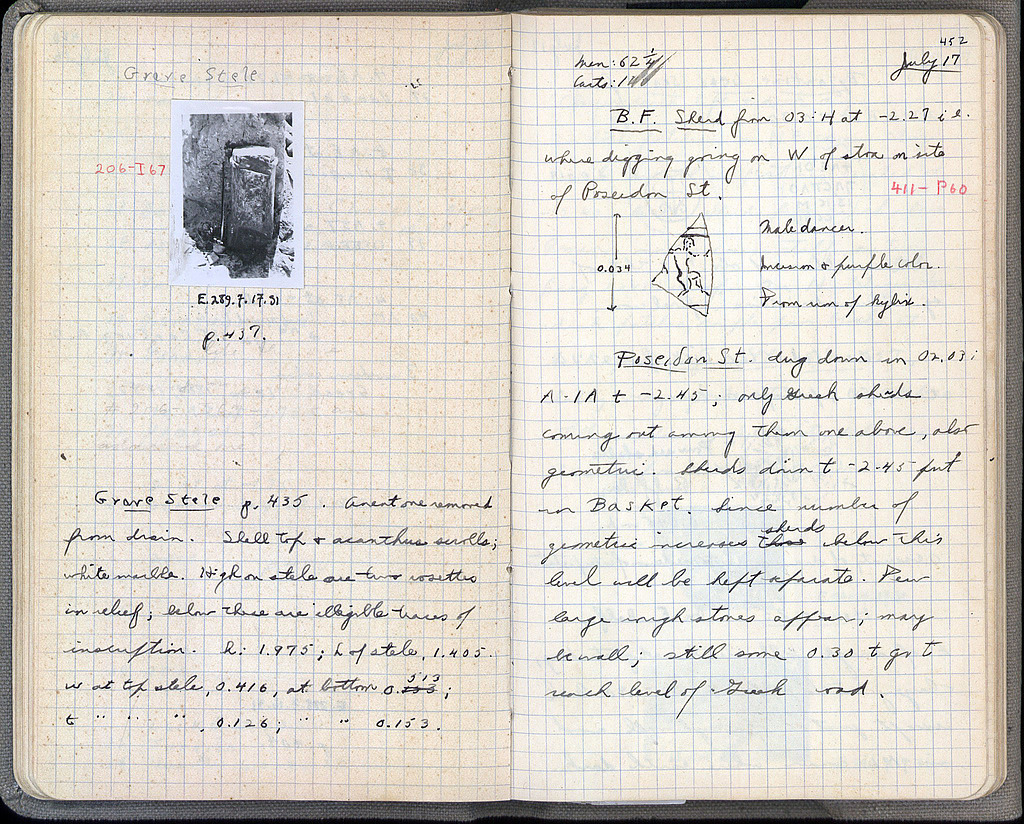 Grave Stele
206-I67
E.289.7.17.31
p.437.
Grave Stele p. 435. one removed
from drain. Shell top & acanthus scrolls;
white marble. High on stele are two rosettes
in relief; below these are illegible traces of
inscription. h: 1.975; h of stele, 1.405.
w at top stele, 0.416, at bottom 0. 513;
t " " " , 0.126; " " 0.153.
452
Men: 62 1/4 July 17
Carts:
B.F. Sherd from 03:H at -2.27 i.e.
where digging going on W of stoa on site
of Poseidon St. 411-P60
Male dancer.
0.034 Incision & purple color.
From rim of kylix.
Poseidon St. dug down in 02,03:
A-1A t -2.45; only Greek sherds
coming out among them one above, also
geometric. Sherds down t -2.45 put
in Basket. Since number of
geometric increases sherds below this
level will be kept separate. Few
large rough stones appear; may
be wall; still some 0.30 t go t
reach level of Greek road.